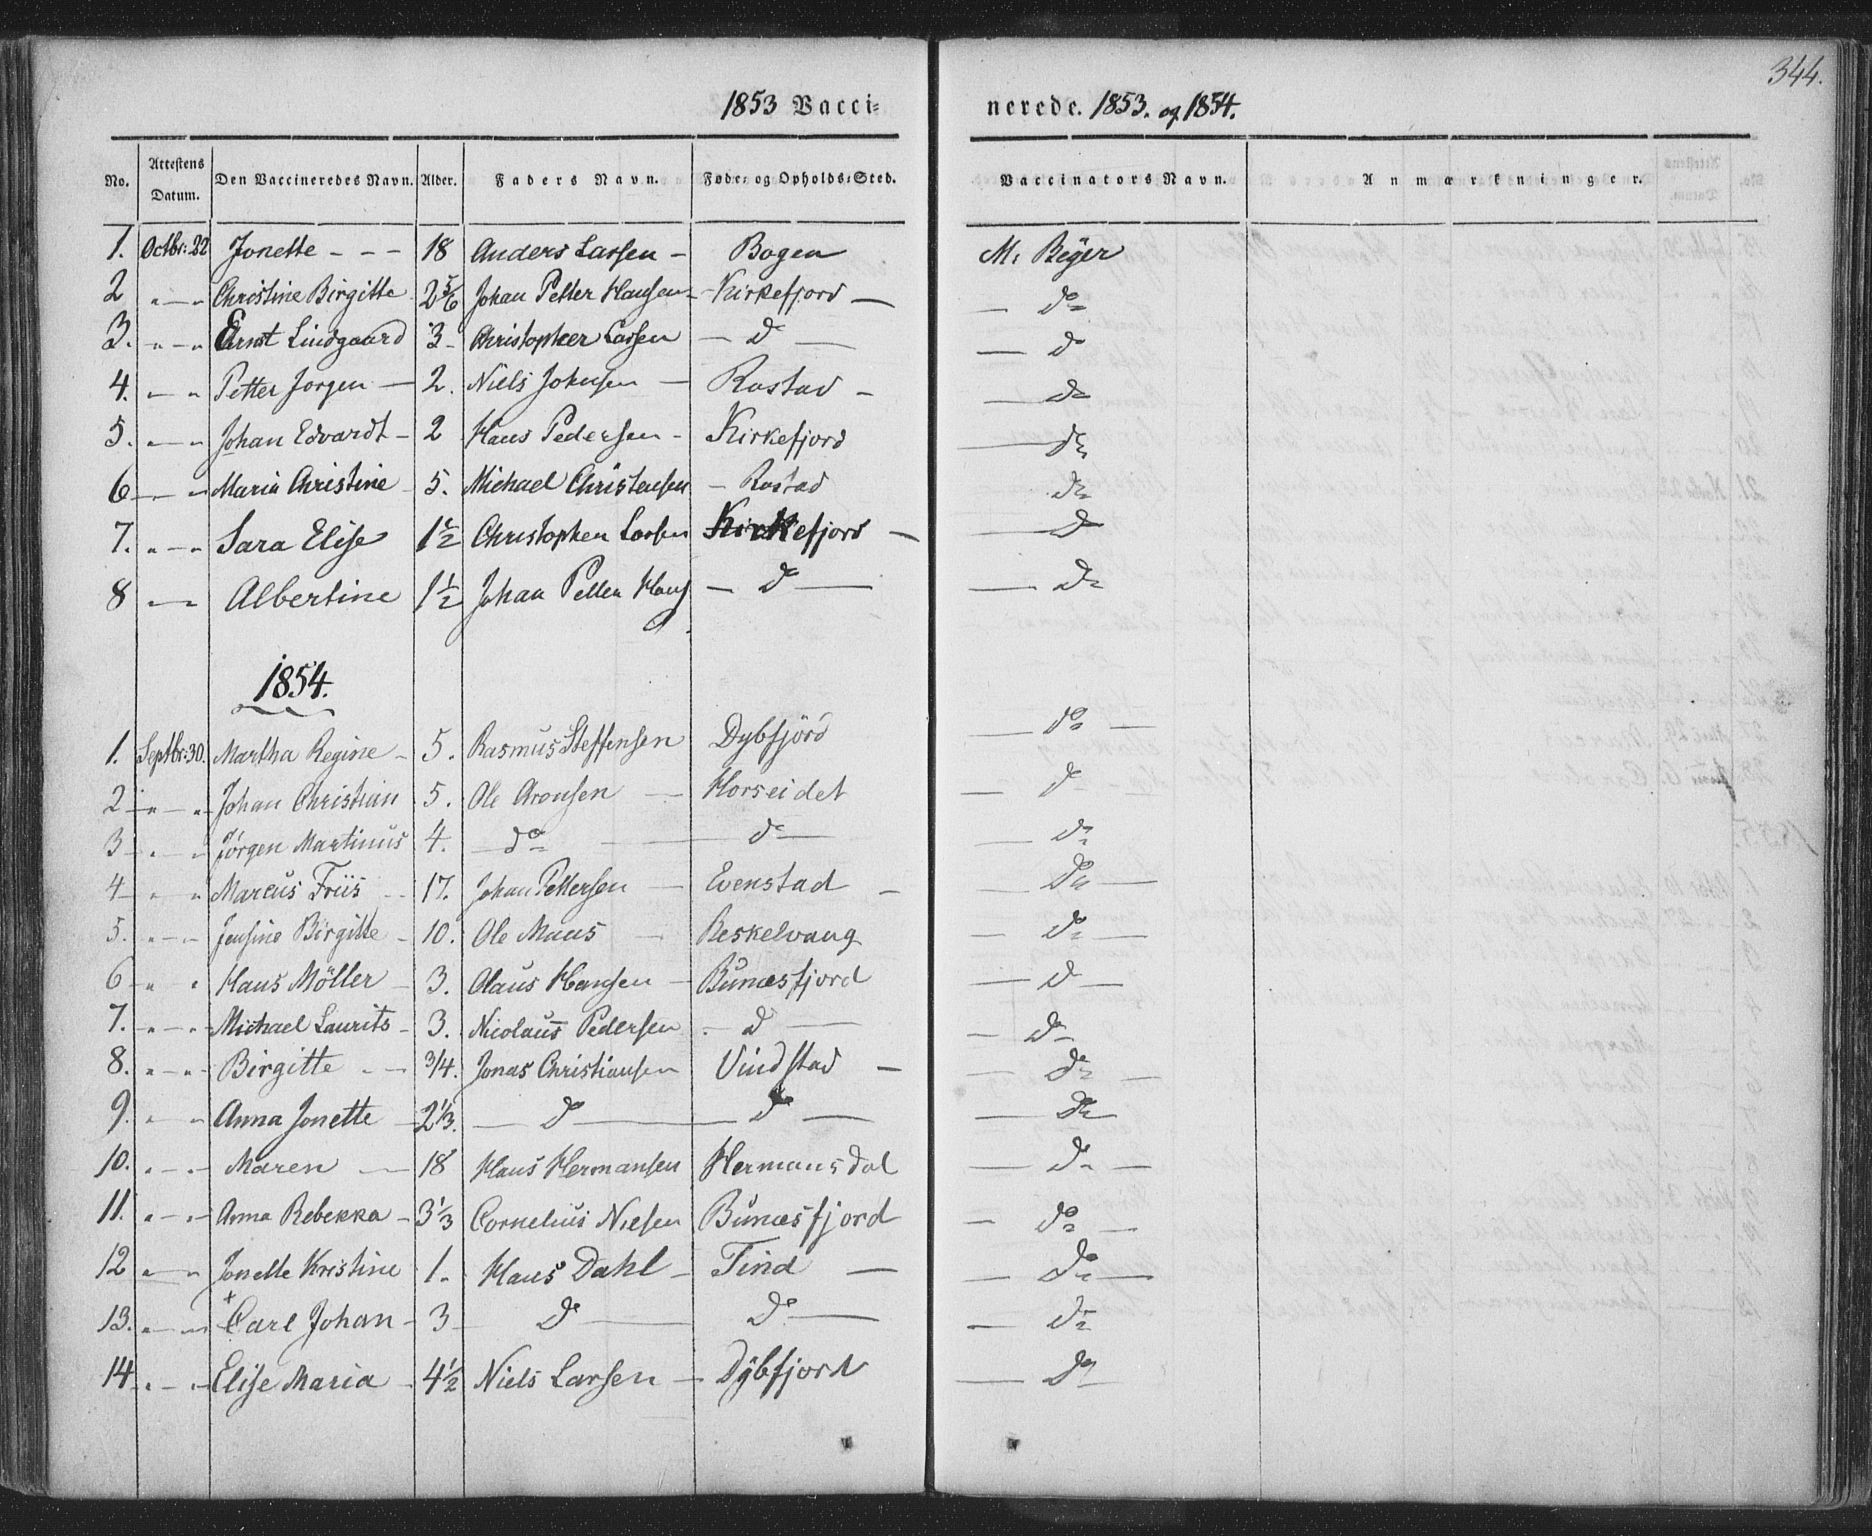 344.
1853 Vacci-
nerede. 1853. og 1854.
No. Attestens Datum. Den Vaccineredes Navn. Alder. Faders Navn. Føde- og Opholds-Sted. Vaccinators Navn. Anmærkninger.
1. Octbr: 22 Jonette - - - 18 Anders Larsen - Bogen M. Beyer
2 " — " Christine Birgitte 2 5/6 Johan Petter Hansen - Kirkefjord — — do
3. " — " Ernst Lindgaard 3 - Christopher Larsen — do — — do
4. " — " Petter Jørgen — 2. Niels Johnsen — Rostad - — do
5. " — " Johan Edvardt - 2 Hans Pedersen - Kirkefjord — do
6 " — " Maria Christine 5. Michael Christensen - Rostad do
7. " — " Sara Elise 1 1/2 Christopher Larsen Kirkefjord — — do
8 " — " Albertine 1 1/2 Johan Petter Hans — do — — do
1854.
1. Septbr: 30. Martha Regine - 5. Rasmus Steffensen Dybfjörd — do —
2 " — " Johan Christian 5. Ole Aronsen — Horseidet — do
3 " — " Jørgen Martinus 4. — do — — do — — do
4 " " Marcus Friis - 17. Johan Pettersen — Evenstad - — do —
5. " — " Jensine Birgitte - 10. Ole Maas — Reskelvang — do —
6 " " Hans Möller - 3. Olaus Hansen - Bunæsfjord — do —
7. " — " Michael Laurits - 3. Nicolaus Pedersen - do — — do -
8. " — " Birgitte - — 3/4. Jonas Christiansen Vindstad — — do —
9. " — " Anna Jonette - 2 1/3. — do — — do — — do —
10. " — " Maren — 18 Hans Hermansen Hermansdal — do —
11. " — " Anna Rebekka - 3 1/3 Cornelius Nielsen Bunæsfjord — do —
12 " — " Jonette Kristine 1. Hans Dahl - Tind — — do —
13. " — " × Carl Johan - 3 — do — — do — — do
14 " — " Elise Maria - 4 1/2 Niels Larsen — Dybfjord — do —